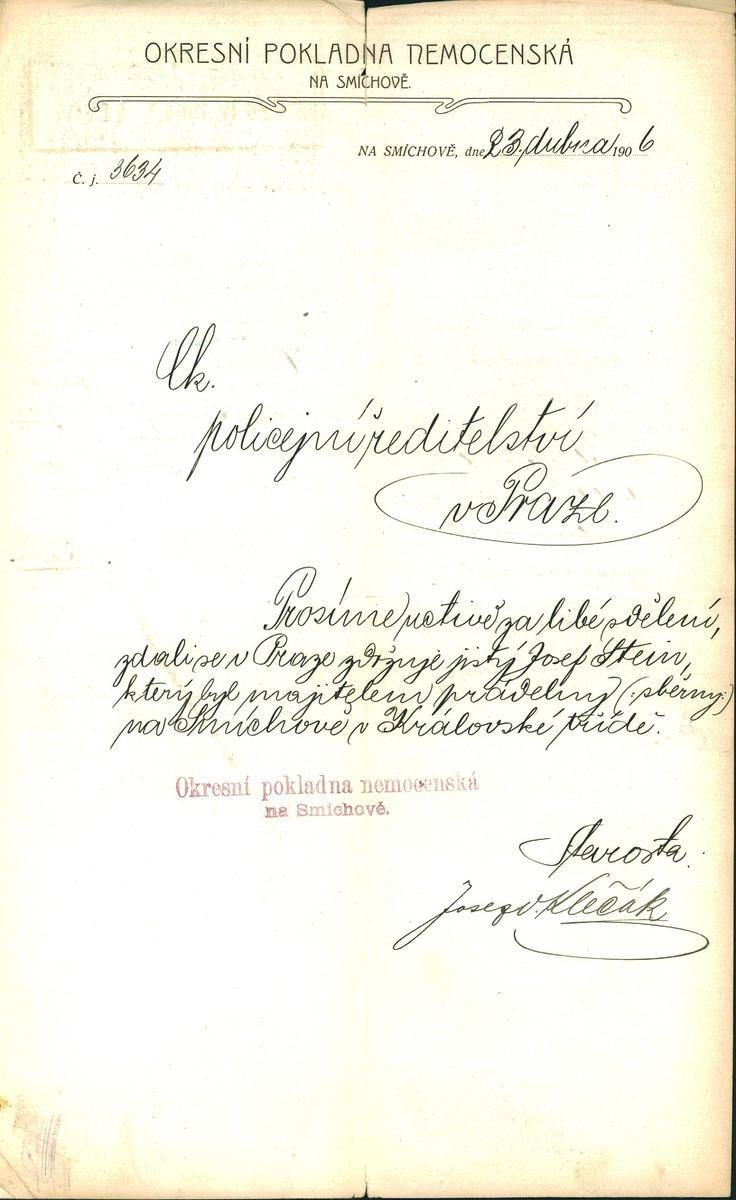 OKRESNÍ POKLADNA NEMOCENSKÁ
NA SMÍCHOVĚ.
NA SMÍCHOVĚ, dne 23. dubna 1906
Č. j. 3634
Ck.
policejní ředitelství
v Praze.
Prosíme uctivě za libé sdělení,
zdali se v Praze zdržuje jistý Josef Stein,
který byl majitelem prádelny (:sběrny:)
na Smíchově v Královské třídě.
Okresní pokladna nemocenská
na Smíchově.
Starosta.
Klečák